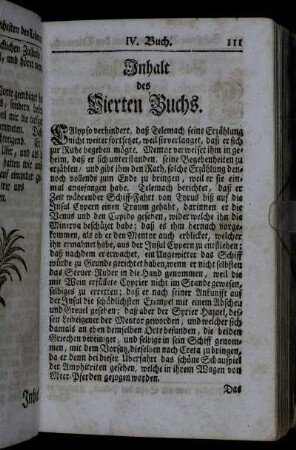 IV. Buch. 111
Inhalt
des
Vierten Buchs.
Calypso verhindert, daß Telemach seine Erzählung
nicht weiter fortsetzet, weil sie verlanget, daß er sich
zur Ruhe begeben mögte. Mentor verweiset ihm in ge-
heim, daß er sich unterstanden, seine Begebenheiten zu
erzählen, und gibt ihm den Rath, solche Erzählung den-
noch vollends zum Ende zu bringen, weil er sie
einmal angefangen habe. Telemach berichtet, daß er
Zeit währender Schiff-Fahrt von Tyrus biß auf die
Insul Cypern einen Traum gehabt, darinnen er die
Venus und den Cupido gesehen, wider welche ihn die
Minerva beschützet habe; daß es ihm hernach vorge-
kommen, als ob er den Mentor auch erblicket, welcher
ihn ermahnet habe, aus der Insul Cypern zu entfliehen;
daß nachdem er erwachet, ein Ungewitter das Schiff
würde zu Grunde gerichtet haben, wenn er nicht selbsten
das Steuer Ruder in die Hand genommen, weil die
mit Wein erfüllete Cyprier nicht im Stande gewesen,
selbiges zu erretten; daß er nach seiner Ankunfft auf
der Insul die schädlichsten Exempel mit einem Abscheu
und Greuel gesehen; daß aber der Syrier Hazael, des-
sen Leibeigener der Mentor geworden, und welcher sich
damals an eben demselben Orte befunden, die beiden
Griechen vereiniget, und selbige in sein Schiff genom-
men, mit dem Vorsatz, dieselben nach Creta zu bringen,
da er denn bei dieser Uberfahrt das schöne Schauspiel
der Amphitriten gesehen, welche in ihrem Wagen von
Meer-Pferden gezogen worden.
Das